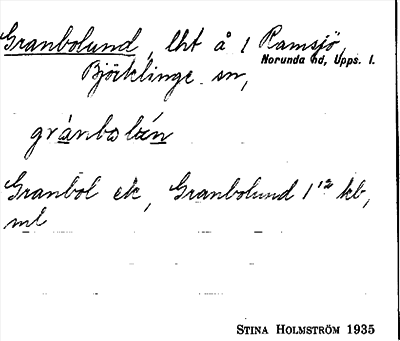 Granbolund, lht å 1 Ramsjö,
Norunda hd, Upps. l.
Björklinge sn,
Granbol ek, Granbolund 1 12 kb,
ml
STINA HOLMSTRÖM 1935